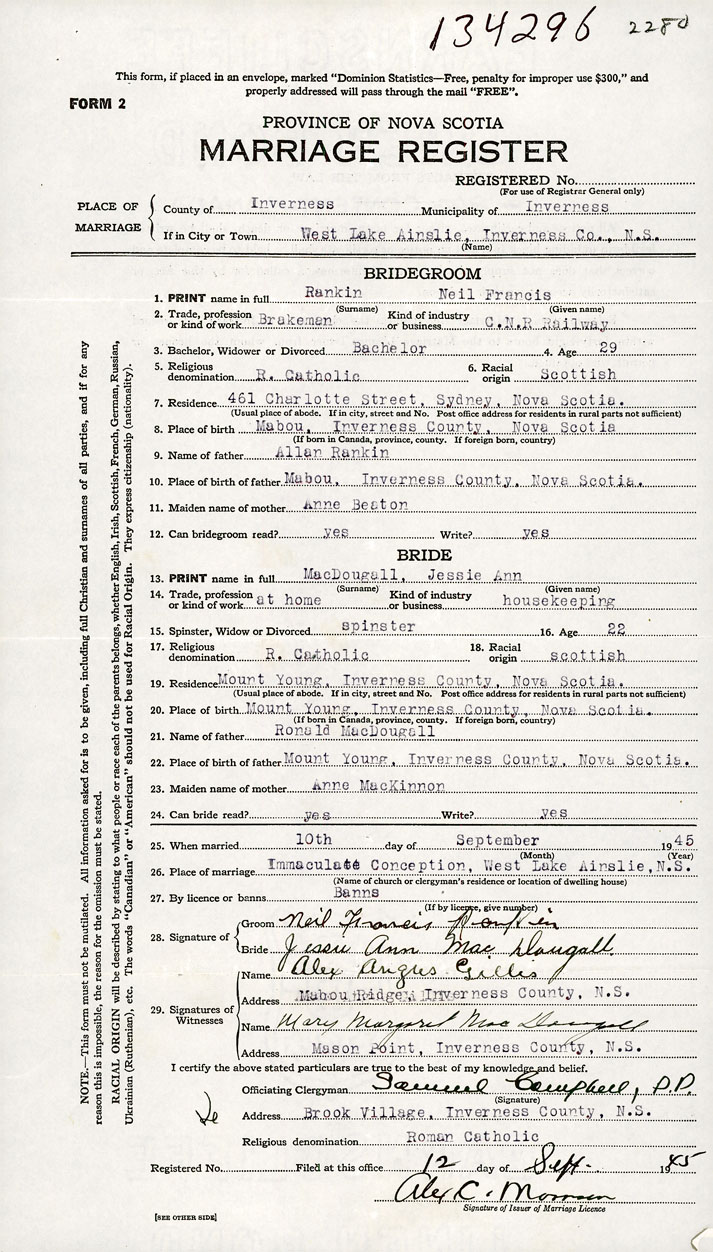 134296 2280
This form, if placed in an envelope, marked "Dominion Statistics—Free, penalty for improper use $300," and
properly addressed will pass through the mail "FREE".
FORM 2
PROVINCE OF NOVA SCOTIA
MARRIAGE REGISTER
REGISTERED No.
(For use of Registrar General only)
PLACE OF MARRIAGE
County of Inverness Municipality of Inverness
If in City or Town West Lake Ainslie, Inverness Co., N.S.
(Name)
BRIDEGROOM
1. PRINT name in full Rankin Neil Francis
(Surname) (Given name)
2. Trade, profession or kind of work Brakeman Kind of industry or business C.N.R Railway
3. Bachelor, Widower or Divorced Bachelor 4. Age 29
5. Religious denomination R. Catholic 6. Racial origin Scottish
7. Residence 461 Charlotte Street, Sydney, Nova Scotia.
(Usual place of abode. If in city, street and No. Post office address for residents in rural parts not sufficient)
8. Place of birth Mabou, Inverness County, Nova Scotia
(If born in Canada, province, county. If foreign born, country)
9. Name of father Allan Rankin
10. Place of birth of father Mabou, Inverness County, Nova Scotia.
11. Maiden name of mother Anne Beaton
12. Can bridegroom read? yes Write? yes
BRIDE
13. PRINT name in full MacDougall, Jessie Ann
(Surname) (Given name)
14. Trade, profession or kind of work at home Kind of industry or business housekeeping
15. Spinster, Widow or Divorced spinster 16. Age 22
17. Religious denomination R. Catholic 18. Racial origin scottish
19. Residence Mount Young, Inverness County, Nova Scotia.
(Usual place of abode. If in city, street and No. Post office address for residents in rural parts not sufficient)
20. Place of birth Mount Young, Inverness County, Nova Scotia.
(If born in Canada, province, county. If foreign born, country)
21. Name of father Ronald MacDougall
22. Place of birth of father Mount Young, Inverness County, Nova Scotia.
23. Maiden name of mother Anne MacKinnon
24. Can bride read? yes Write? yes
25. When married 10th day of September 1945
(Month) (Year)
26. Place of marriage Immaculate Conception, West Lake Ainslie, N.S.
(Name of church or clergyman's residence or location of dwelling house)
27. By licence or banns Banns
(If by licence, give number)
28. Signature of
Groom Neil Francis Rankin
Bride Jessie Ann MacDougall.
29. Signatures of Witnesses
Name Alex Angus Gillis
Address Mabou Ridge, Inverness County, N.S.
Name Mary Margaret MacDougall
Address Mason Point, Inverness County, N.S.
I certify the above stated particulars are true to the best of my knowledge and belief.
Officiating Clergyman Samuel Campbell, P.P.
(Signature)
Address Brook Village, Inverness County, N.S.
Religious denomination Roman Catholic
Registered No. Filed at this office 12 day of Sept. 1945
Alex C. Morrison
Signature of Issuer of Marriage Licence
[SEE OTHER SIDE]
NOTE.—This form must not be mutilated. All information asked for is to be given, including full Christian and surnames of all parties, and if for any
reason this is impossible, the reason for the omission must be stated.
RACIAL ORIGIN will be described by stating to what people or race each of the parents belongs, whether English, Irish, Scottish, French, German, Russian,
Ukrainian (Ruthenian), etc. The words "Canadian" or "American" should not be used for Racial Origin. They express citizenship (nationality).